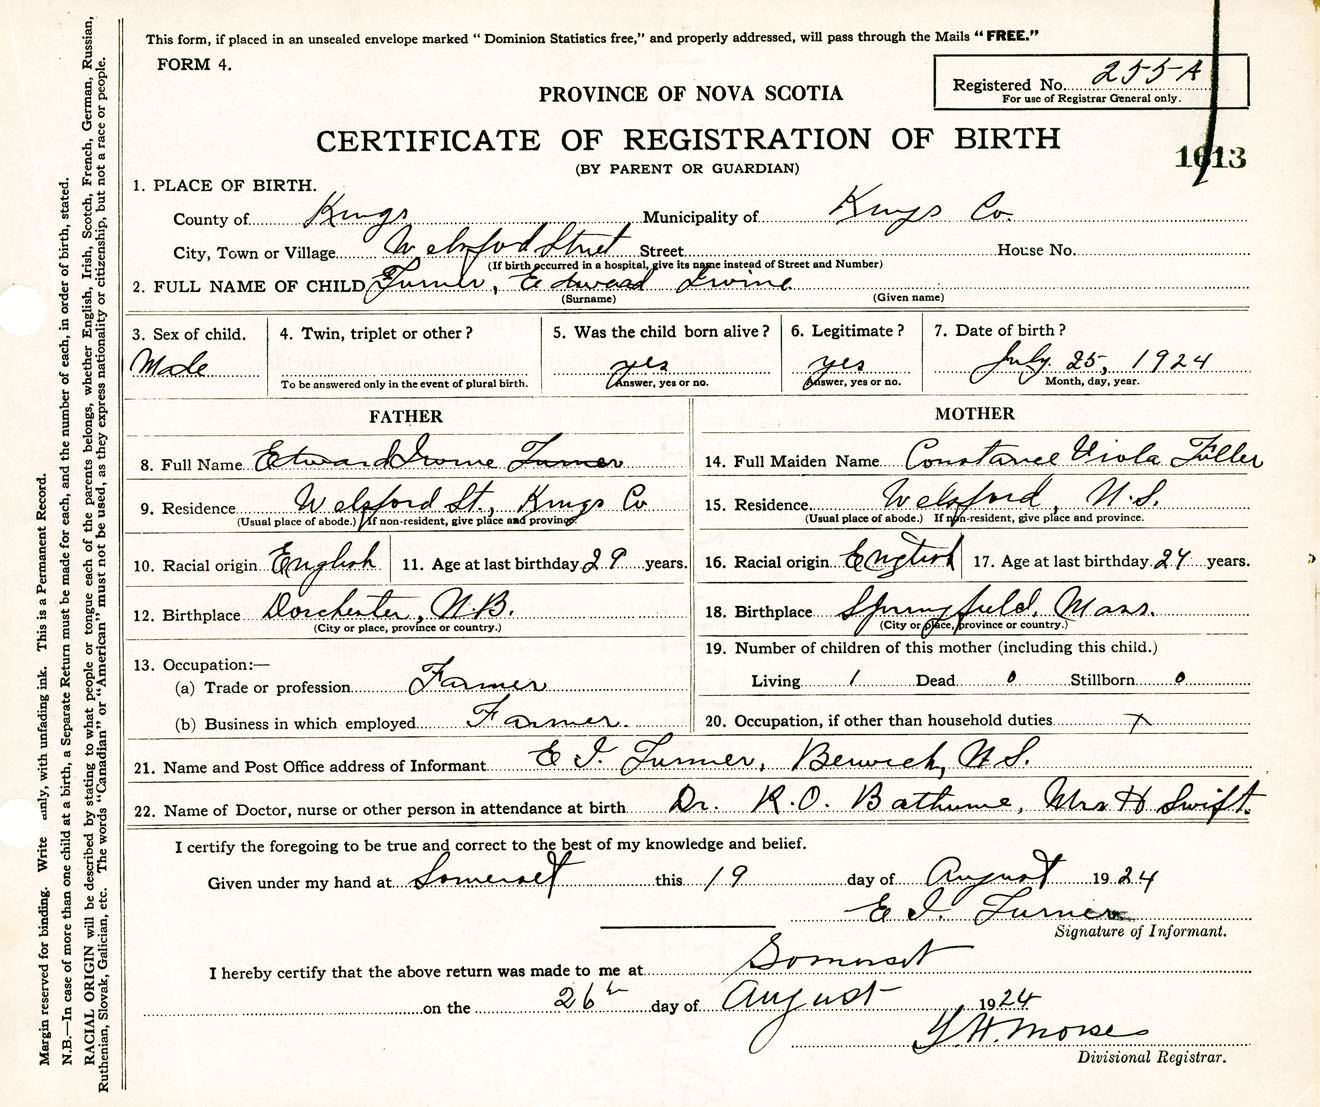 This form, if placed in an unsealed envelope marked “ Dominion Statistics free,” and properly addressed, will pass through the Mails “ FREE.”
FORM 4.
Registered No. 255A
For use of Registrar General only.
PROVINCE OF NOVA SCOTIA
CERTIFICATE OF REGISTRATION OF BIRTH
1613
(BY PARENT OR GUARDIAN)
1. PLACE OF BIRTH.
County of Kings Municipality of Kings Co.
City, Town or Village Welsford Street Street House No.
(If birth occurred in a hospital, give its name instead of Street and Number)
2. FULL NAME OF CHILD Turner, Edward Irvine
(Surname) (Given name)
3. Sex of child. 4. Twin, triplet or other ? 5. Was the child born alive ? 6. Legitimate ? 7. Date of birth ?
Male yes yes July 25, 1924
To be answered only in the event of plural birth. Answer, yes or no. Answer, yes or no. Month, day, year.
FATHER MOTHER
8. Full Name Edward Irvine Turner 14. Full Maiden Name Constance Viola Fuller
9. Residence Welsford St., Kings Co 15. Residence Welsford, N.S.
(Usual place of abode.) If non-resident, give place and province. (Usual place of abode.) If non-resident, give place and province.
10. Racial origin English 11. Age at last birthday 29 years. 16. Racial origin English 17. Age at last birthday 24 years.
12. Birthplace Dorchester, N.B. 18. Birthplace Springfield, Mass.
(City or place, province or country.) (City or place, province or country.)
13. Occupation:— 19. Number of children of this mother (including this child.)
(a) Trade or profession Farmer Living 1 Dead 0 Stillborn 0
(b) Business in which employed Farmer. 20. Occupation, if other than household duties x
21. Name and Post Office address of Informant E I. Turner, Berwick, N.S.
22. Name of Doctor, nurse or other person in attendance at birth Dr. R.O. Bethune, Mrs H Swift.
I certify the foregoing to be true and correct to the best of my knowledge and belief.
Given under my hand at Somerset this 19 day of August 1924
E I. Turner
Signature of Informant.
I hereby certify that the above return was made to me at Somerset
on the 26th day of August 1924
Y.H. Morse
Divisional Registrar.
Margin reserved for binding. Write only, with unfading ink. This is a Permanent Record.
N.B.—In case of more than one child at a birth, a Separate Return must be made for each, and the number of each, in order of birth, stated.
RACIAL ORIGIN will be described by stating to what people or tongue each of the parents belongs, whether English, Irish, Scotch, French, German, Russian,
Ruthenian, Slovak, Galician, etc. The words “Canadian” or “American” must not be used, as they express nationality or citizenship, but not a race or people.